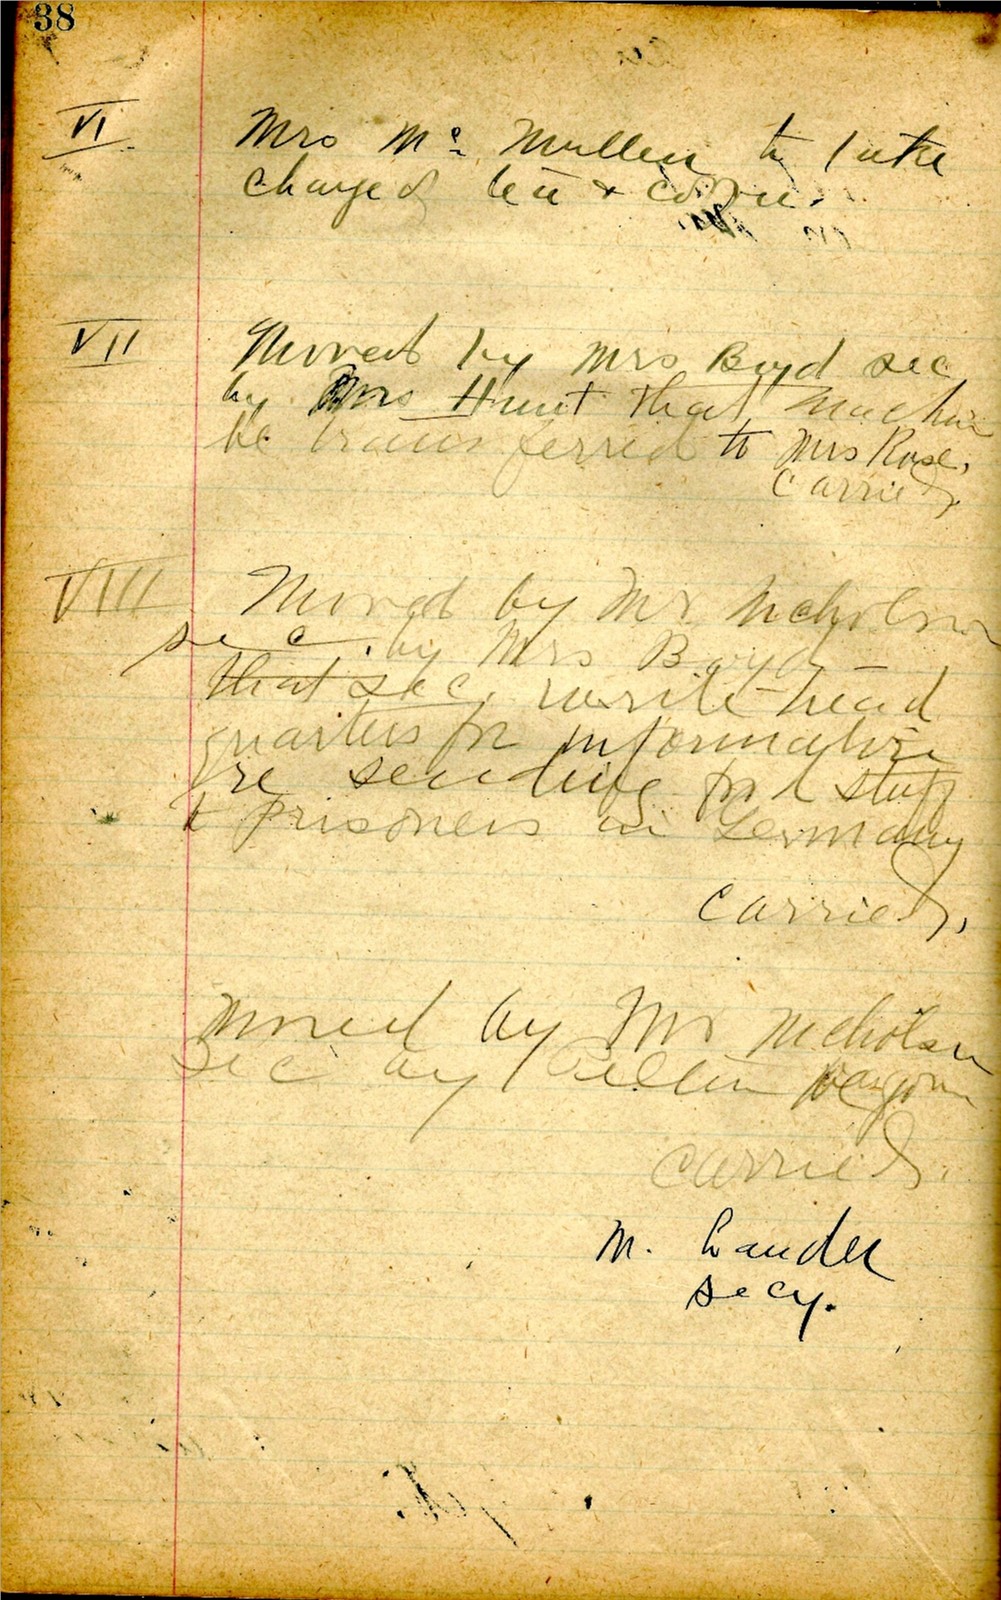 38
VI Mrs Mc Mullen to take
charge of tea & coffee.
VII Moved by Mrs Boyd sec
by Mrs Hunt that machine
be transferred to Mrs Rose.
Carried.
VIII Moved by Mr Nicholson
sec. by Mrs Boyd
that sec. write head
quarters for information
re sending food stuff
to prisoners in Germany
Carried.
Moved by Mr Nicholson
Sec by
Carried.
M. Lauder
secy.